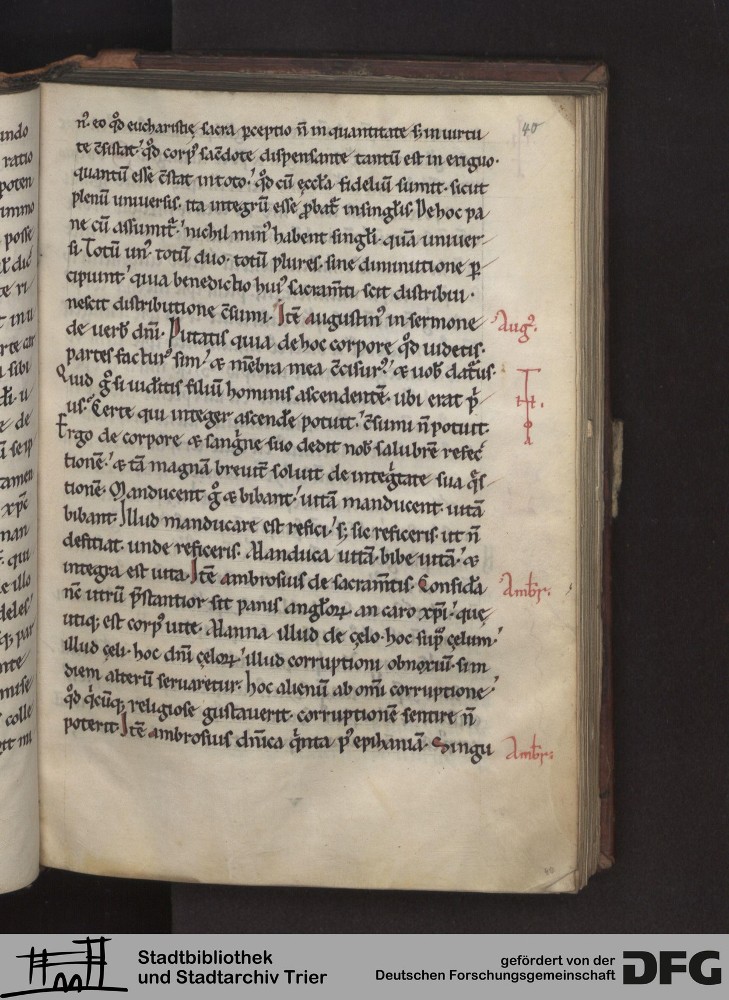 40
n̄. eo qd̄ eucharistię sacra ꝑceptio n̄ in quantitate s; in uirtu
te c̄sistat. qd̄ corp᷒ sac̄dote dispensante tantū est in exiguo.
quantū esse c̄stat in toto. qd̄ cū eccƚa fidelium sumit. sicut
plenū uniuersis. ita integrū esse ꝓbat᷑ in singƚis. De hoc pa
ne cū assumit᷑. nichil min᷒ habent singƚi. quā uniuer-
si. Totū un᷒. totū duo. totū plures. sine diminutione ꝑ
cipiunt. quia benedictio hui᷒ sacram̄ti scit distribui.
nescit distributione c̄sumi. Itē augustin᷒ in sermone
Aug᷒.
de uerƀ dn̄i. Putatis quia de hoc corpore qd̄ uidetis.
partes factur᷒ sim. & mēbra mea c̄cisur᷒. & uoƀ datur᷒.
Quid g° si uid̄itis filiū hominis ascendentē. ubi erat p̄
us. Certe qui integer ascend̄e potuit. c̄sumi n̄ potuit.
Ergo de corpore & sanḡne suo dedit noƀ salubrē refec
tionē. & tā magnā breuit̄ soluit de inteḡtate sua q̄s
tionē. Manducent g° & bibant. uitā manducent uitā
bibant. Illud manducare est refici. s; sic reficeris. ut n̄
deficiat. unde reficeris. Manduca uitā. bibe uitā. &
integra est uita. Itē ambrosius de sacram̄tis. Consid̄a
Ambr̄.
nc̄ utrū p̄stantior sit panis angƚoꝝ. an caro xp̄i. quę
utiq; est corp᷒ uite. Manna illud de cęlo. hoc sup̄ cęlum.
illud cęli. hoc dn̄i cęloꝝ. illud corruptioni obnoxiū. si in
diem alterū seruaretur. hoc alienū ab om̄i corruptione.
qd̄ q̄cūq; religiose gustauerit. corruptionē sentire n̄
poterit. Itē ambrosius dn̄ica q̄nta p᷒ epiphaniā. Singu
Ambr̄.
40
Stadtbibliothek
und Stadtarchiv Trier
gefördert von der
Deutschen Forschungsgemeinschaft
DFG